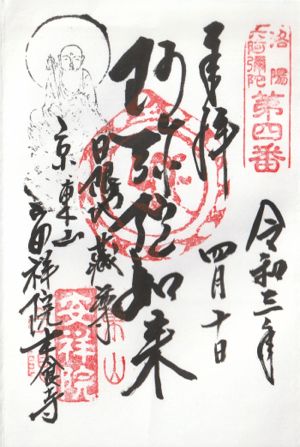 洛陽
六阿彌陀
第四番
奉拝
令和三年
四月十日
阿弥陀如来
日限地蔵尊
京東山
安祥院